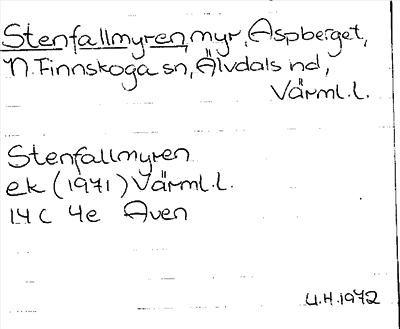 Stenfallmyren, myr, Aspberget,
N. Finnskoga sn, Älvdals hd,
Värml.l.
Stenfallmyren
ek (1971) Värml.l.
14 C 4e Aven
U.H. 1972